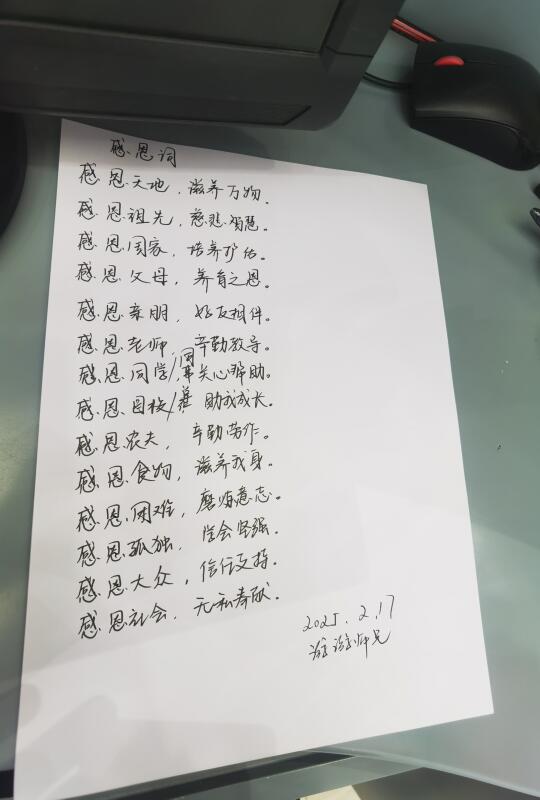 感恩词
感恩天地，滋养万物。
感恩祖先，慈悲智慧。
感恩国家，培养护佑。
感恩父母，养育之恩。
感恩亲朋，好友相伴。
感恩老师，辛勤教导。
感恩同学/同事关心帮助。
感恩母校/ 助我成长。
感恩农夫，辛勤劳作。
感恩食物，滋养我身。
感恩困难，磨炼意志。
感恩孤独，学会坚强。
感恩大众，信任支持。
感恩社会，无私奉献。
2025.2.17
师兄